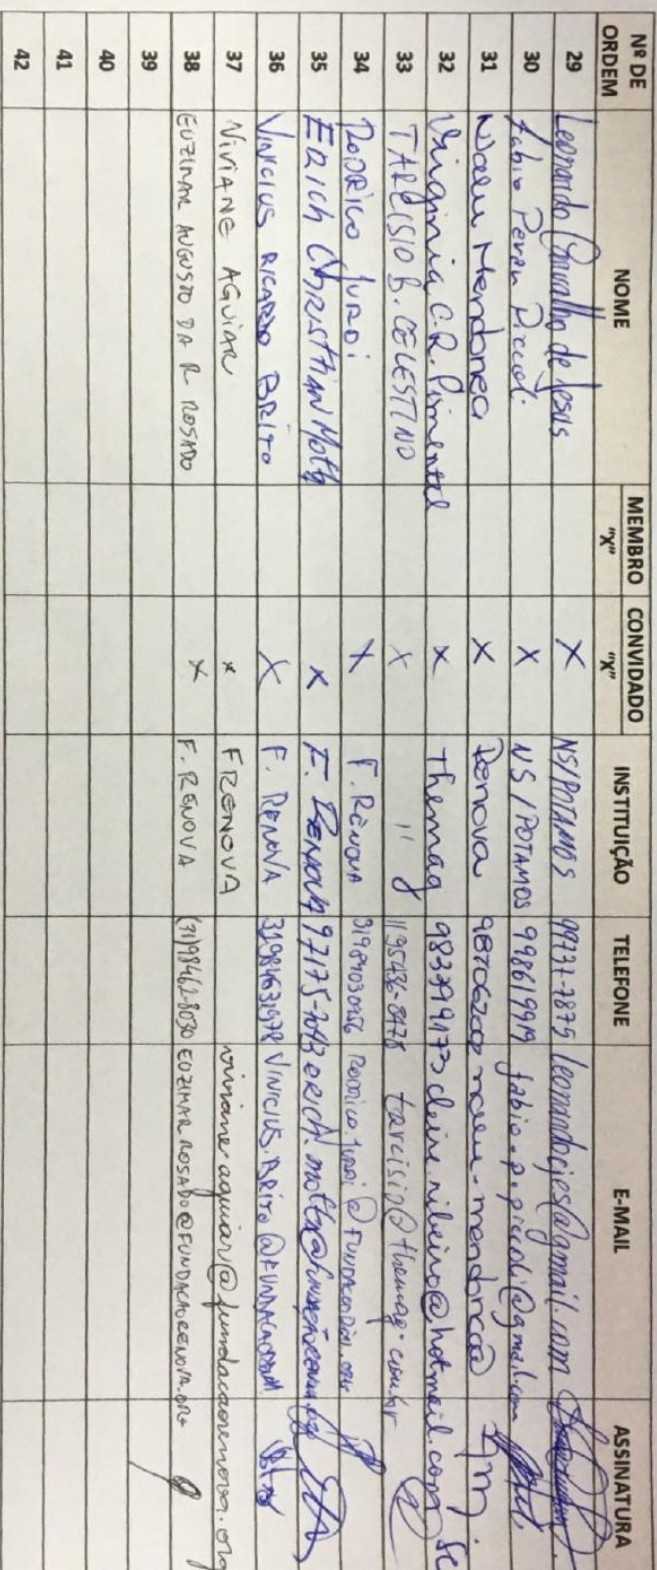 Nº DE ORDEM NOME MEMBRO "X" CONVIDADO "X" INSTITUIÇÃO TELEFONE E-MAIL ASSINATURA
29 Leonardo Carvalho de Jesus X NS/POTAMOS 99737-7875 leonardocjes@gmail.com
30 Fabio Perau Piccoli X NS/POTAMOS 998619919 fabio.p.piccoli@gmail.com
31 Mendonça X Renova
32 Virginia C.R. Pimentel X Themag 983399173 cleire.ribeiro@hotmail.com
33 TARCISIO B. CELESTINO X " 11 95436-8478 tarcisio@themag.com.br
34 RODRIGO X F. RENOVA
35 ERICH CHRISTIAN MOTTA X F. RENOVA 97175-2093
36 VINICIUS RICARDO BRITO X F. RENOVA 31984631978
37 VIVIANE AGUIAR X FRENOVA viviane.aguiar@fundacaorenova.org
38 EUZIMAR AUGUSTO DA R ROSADO X F. RENOVA (31)98462-8030 EUZIMAR.ROSADO@FUNDACAORENOVA.ORG
39
40
41
42